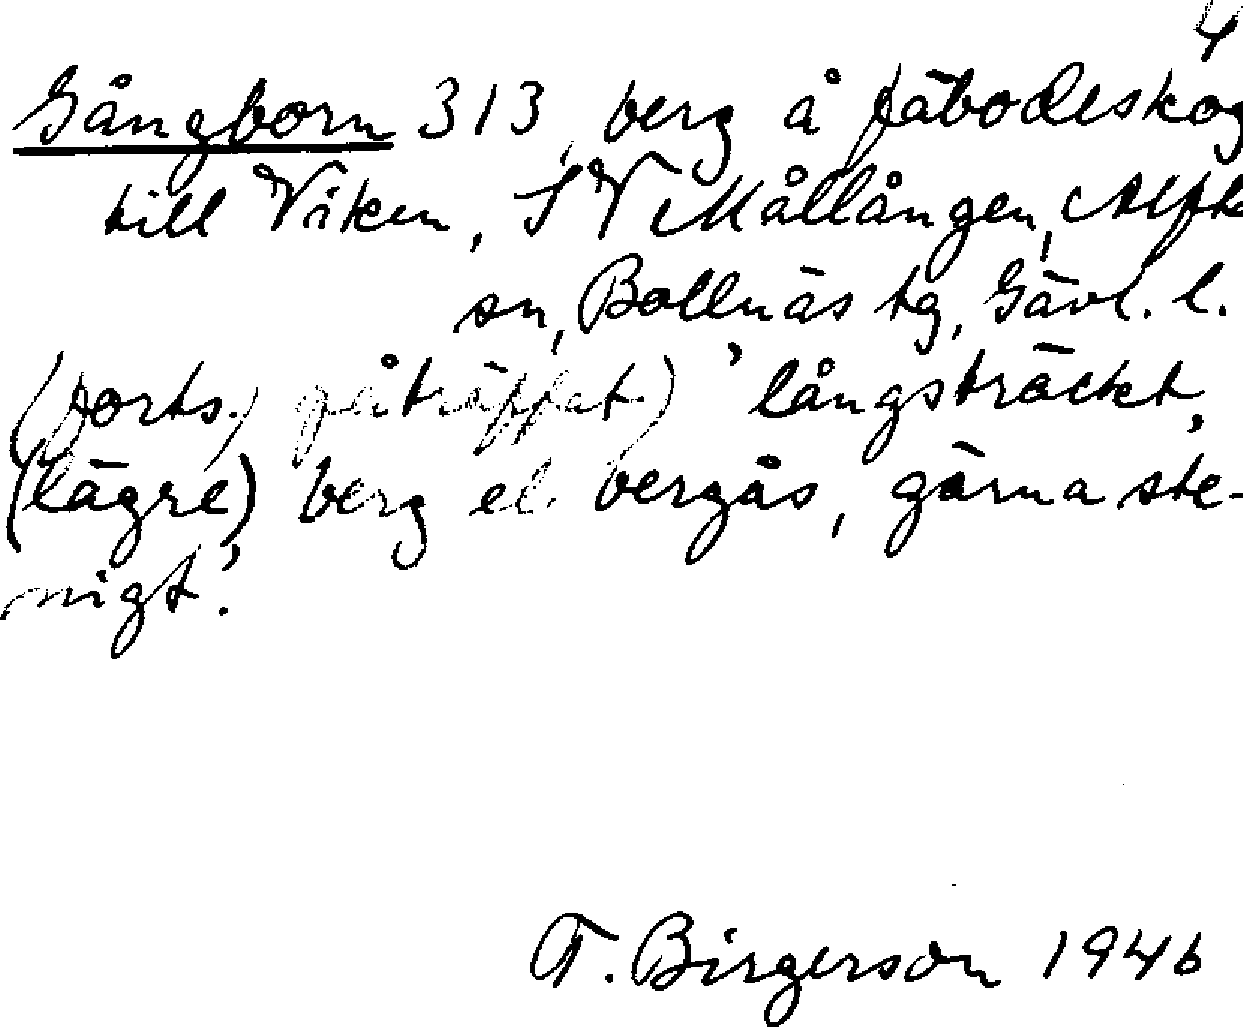 4
Gångborn 313, berg å fäbodeskog
till Viken, SV Mållången, Alfta
sn, Bollnäs tg, Gävl. l.
(forts.) påträffat) 'långsträckt,
(lägre) berg el. bergås, gärna ste-
nigt'.
T. Birgerson 1946